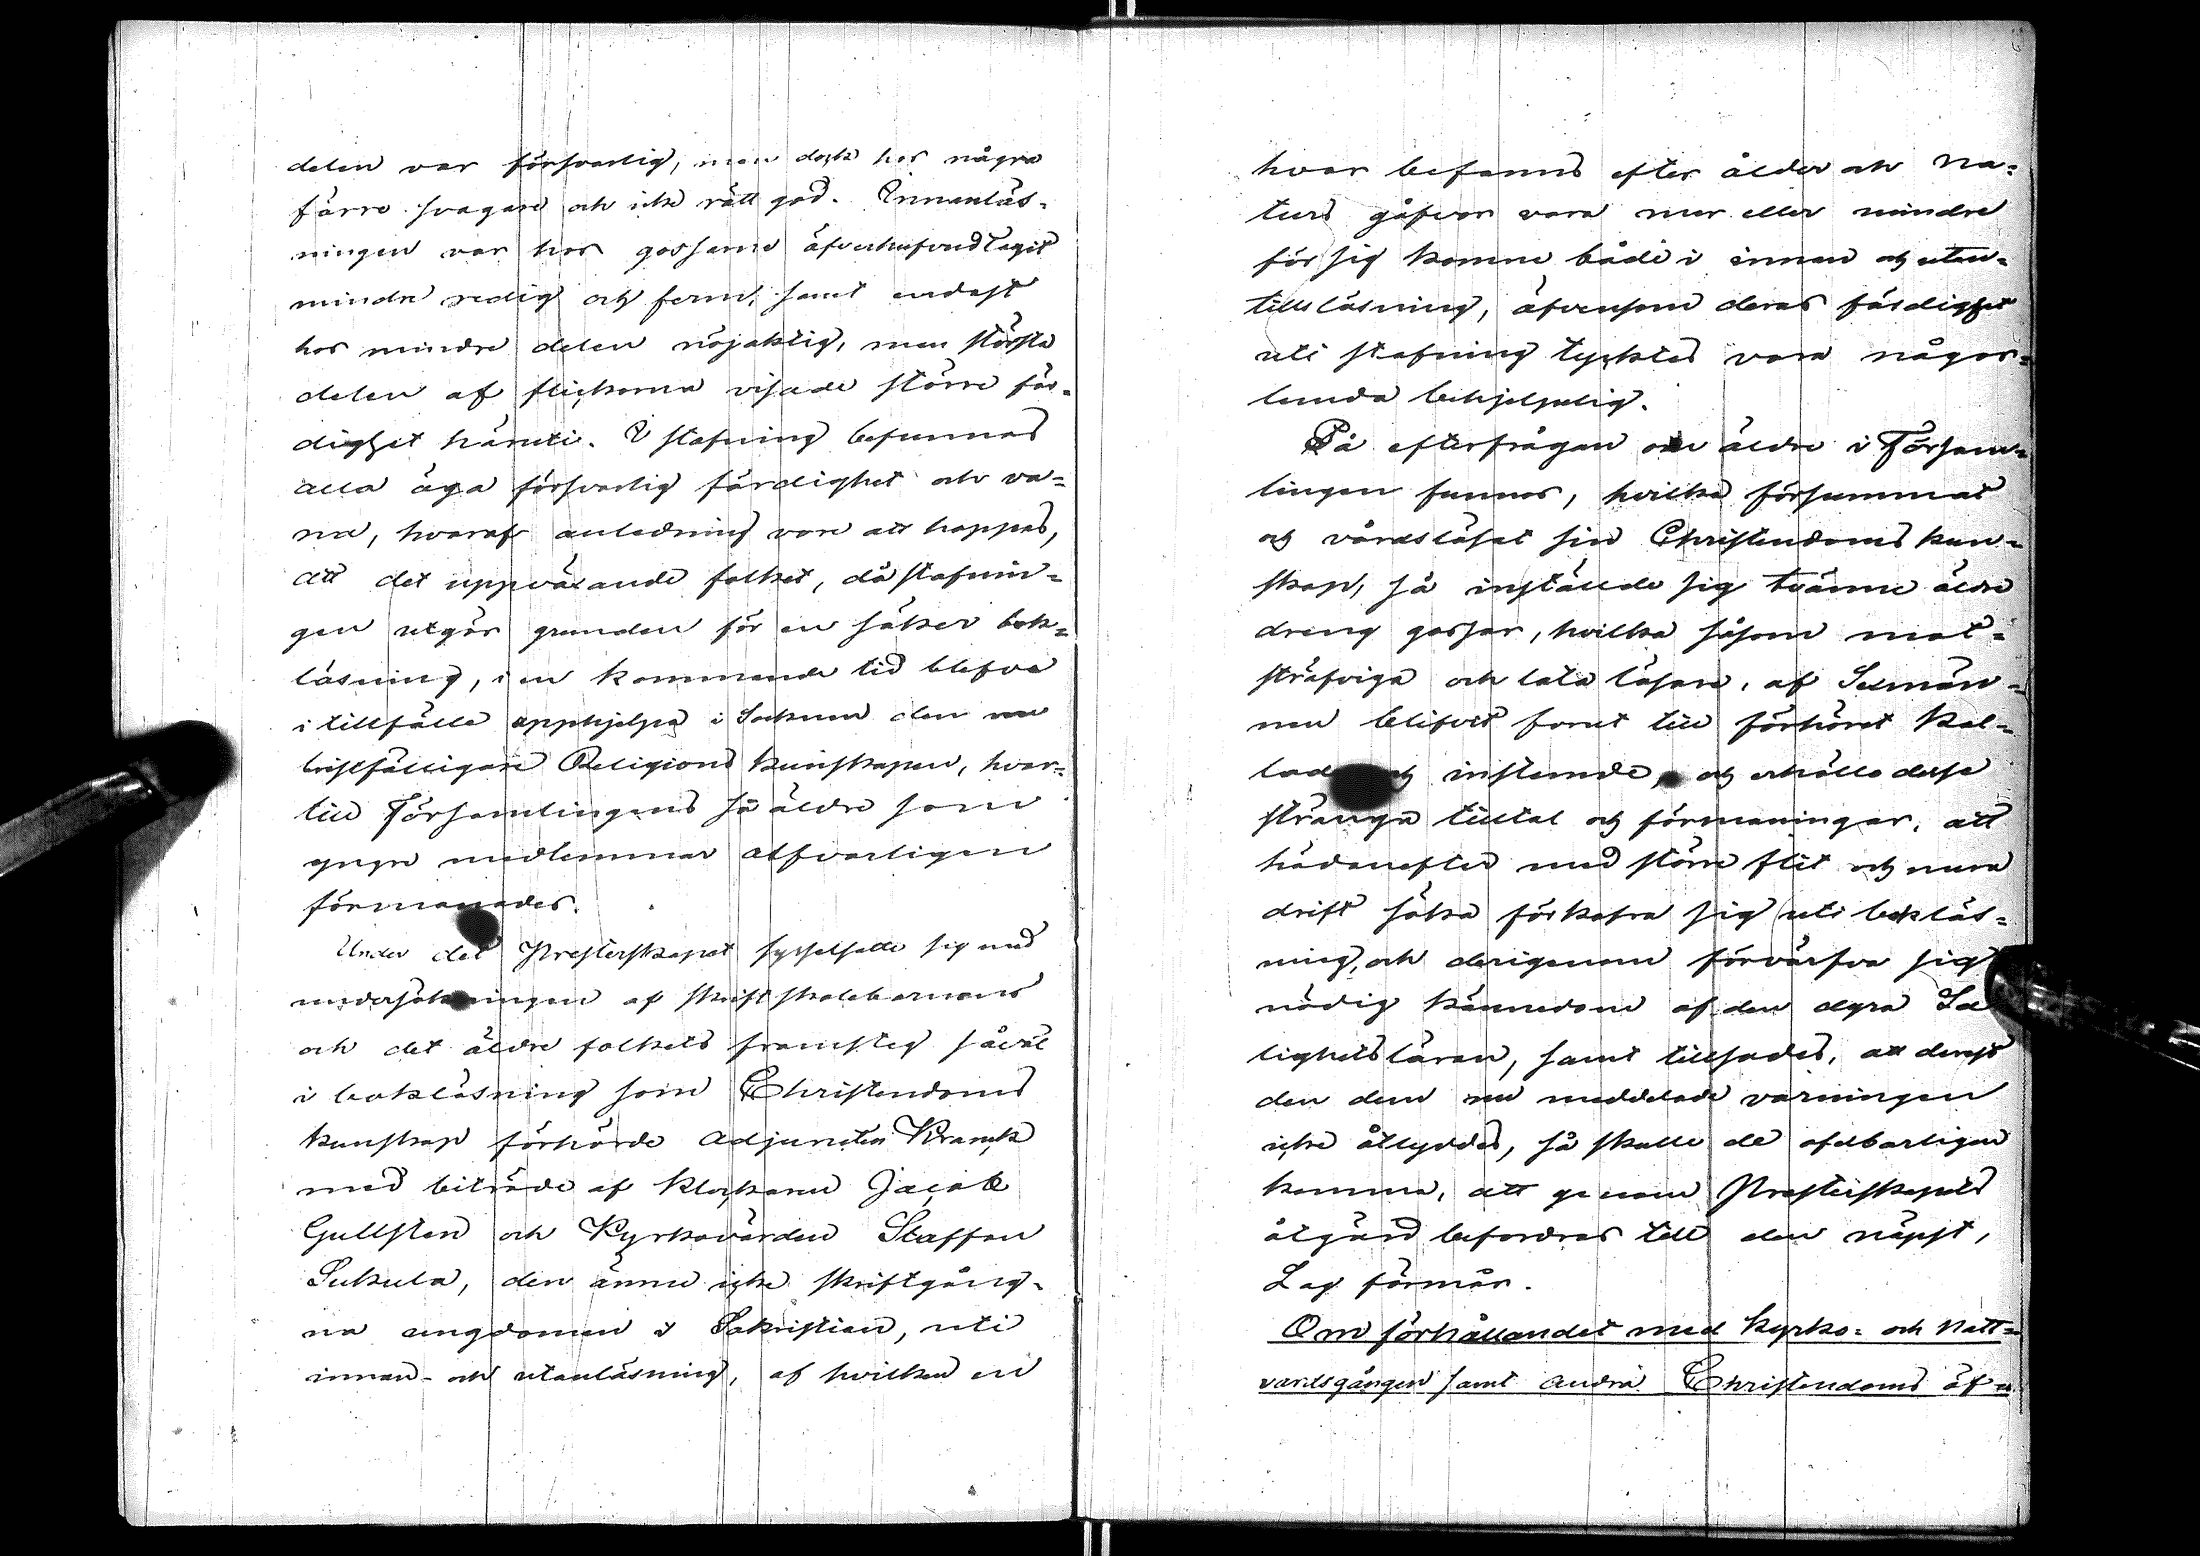 delen var försvarlig, men dock hos några
färre svagare och icke rätt god. Innanläs-
ningen var hos gossarne äfverhufvudtagit
mindre redig och ferm, samt endast
hos mindre delen nöjaktig, men största
delen af flickorna visade större fär-
dighet häruti. I stafning befunnos
alla äga försvarlig färdighet och va-
na, hvaraf anledning vore att hoppas,
att det uppväxande folket, då stafnin-
gen utgör grunden för en säker bok-
läsning, i en kommande tid blefve
i tillfälle upphjelpa i Socknen den nu
bristfälligare Religions kunskapen, hvar-
till Församlingens så äldre som
yngre medlemmar alfvarligen
förmanades.
Under det Presterskapet sysselsatte sig med
undersökningen af skriftskolebarnens
och det äldre folkets framsteg såväl
i bokläsning som Christendoms
kunskap förhörde Adjuncten Kranck
med biträde af Klockaren Jacob
Gullsten och Kyrkovärden Staffan
Sukula, den ännu icke skriftgång-
na ungdomen i Sakristian, uti
innan- och utanläsning, af hvilken en
hvar befanns efter ålder och na-
turs gåfvor vara mer eller mindre
försigkomne både i innan och utan-
tillsläsning, äfvensom deras färdighet
uti stafning tycktes vara någor-
lunda behjelpelig.
På efterfrågan om äldre i Försam-
lingen funnos, hvilka försummat
och vårdslösat sin Christendoms kun-
skap, så inställde sig tvänne äldre
dreng gossar, hvilka såsom mot-
sträfviga och lata läsare, af Sexmän-
nen blifvit förut till förhöret kal-
lade och instemde, och erhöllo desse
stränga tilltal och förmaningar, att
hädanefter med större flit och mera
drift söka förkofra sig uti bokläs-
ning, och derigenom förvärfva sig
nödig kännedom af den dyra Sa
lighetsläran, samt tillsades, att derest
den dem nu meddelade varningen
icke åtlyddes, så skulle de ofelbarligen
komma, att genom Presterskapets
åtgärd befordras till den näpst,
Lag förmår.
Om förhållandet med kyrko- och natt-
vardsgången samt andra Christendoms öf-